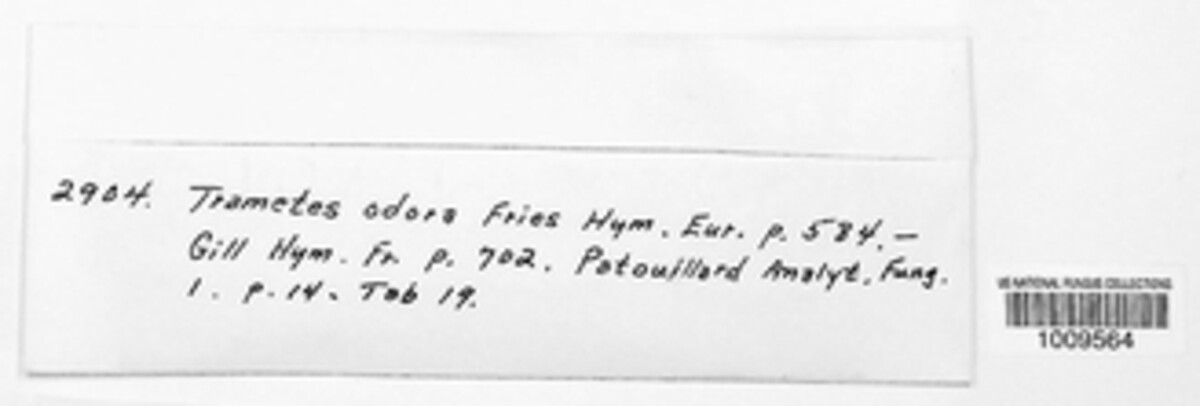 2904. Trametes odora Fries Hym. Eur. p. 584. —
Gill Hym. Fr. p. 702. Patouillard Analyt. Fung.
1. p. 14. Tab 19.
US NATIONAL FUNGUS COLLECTIONS
1009564